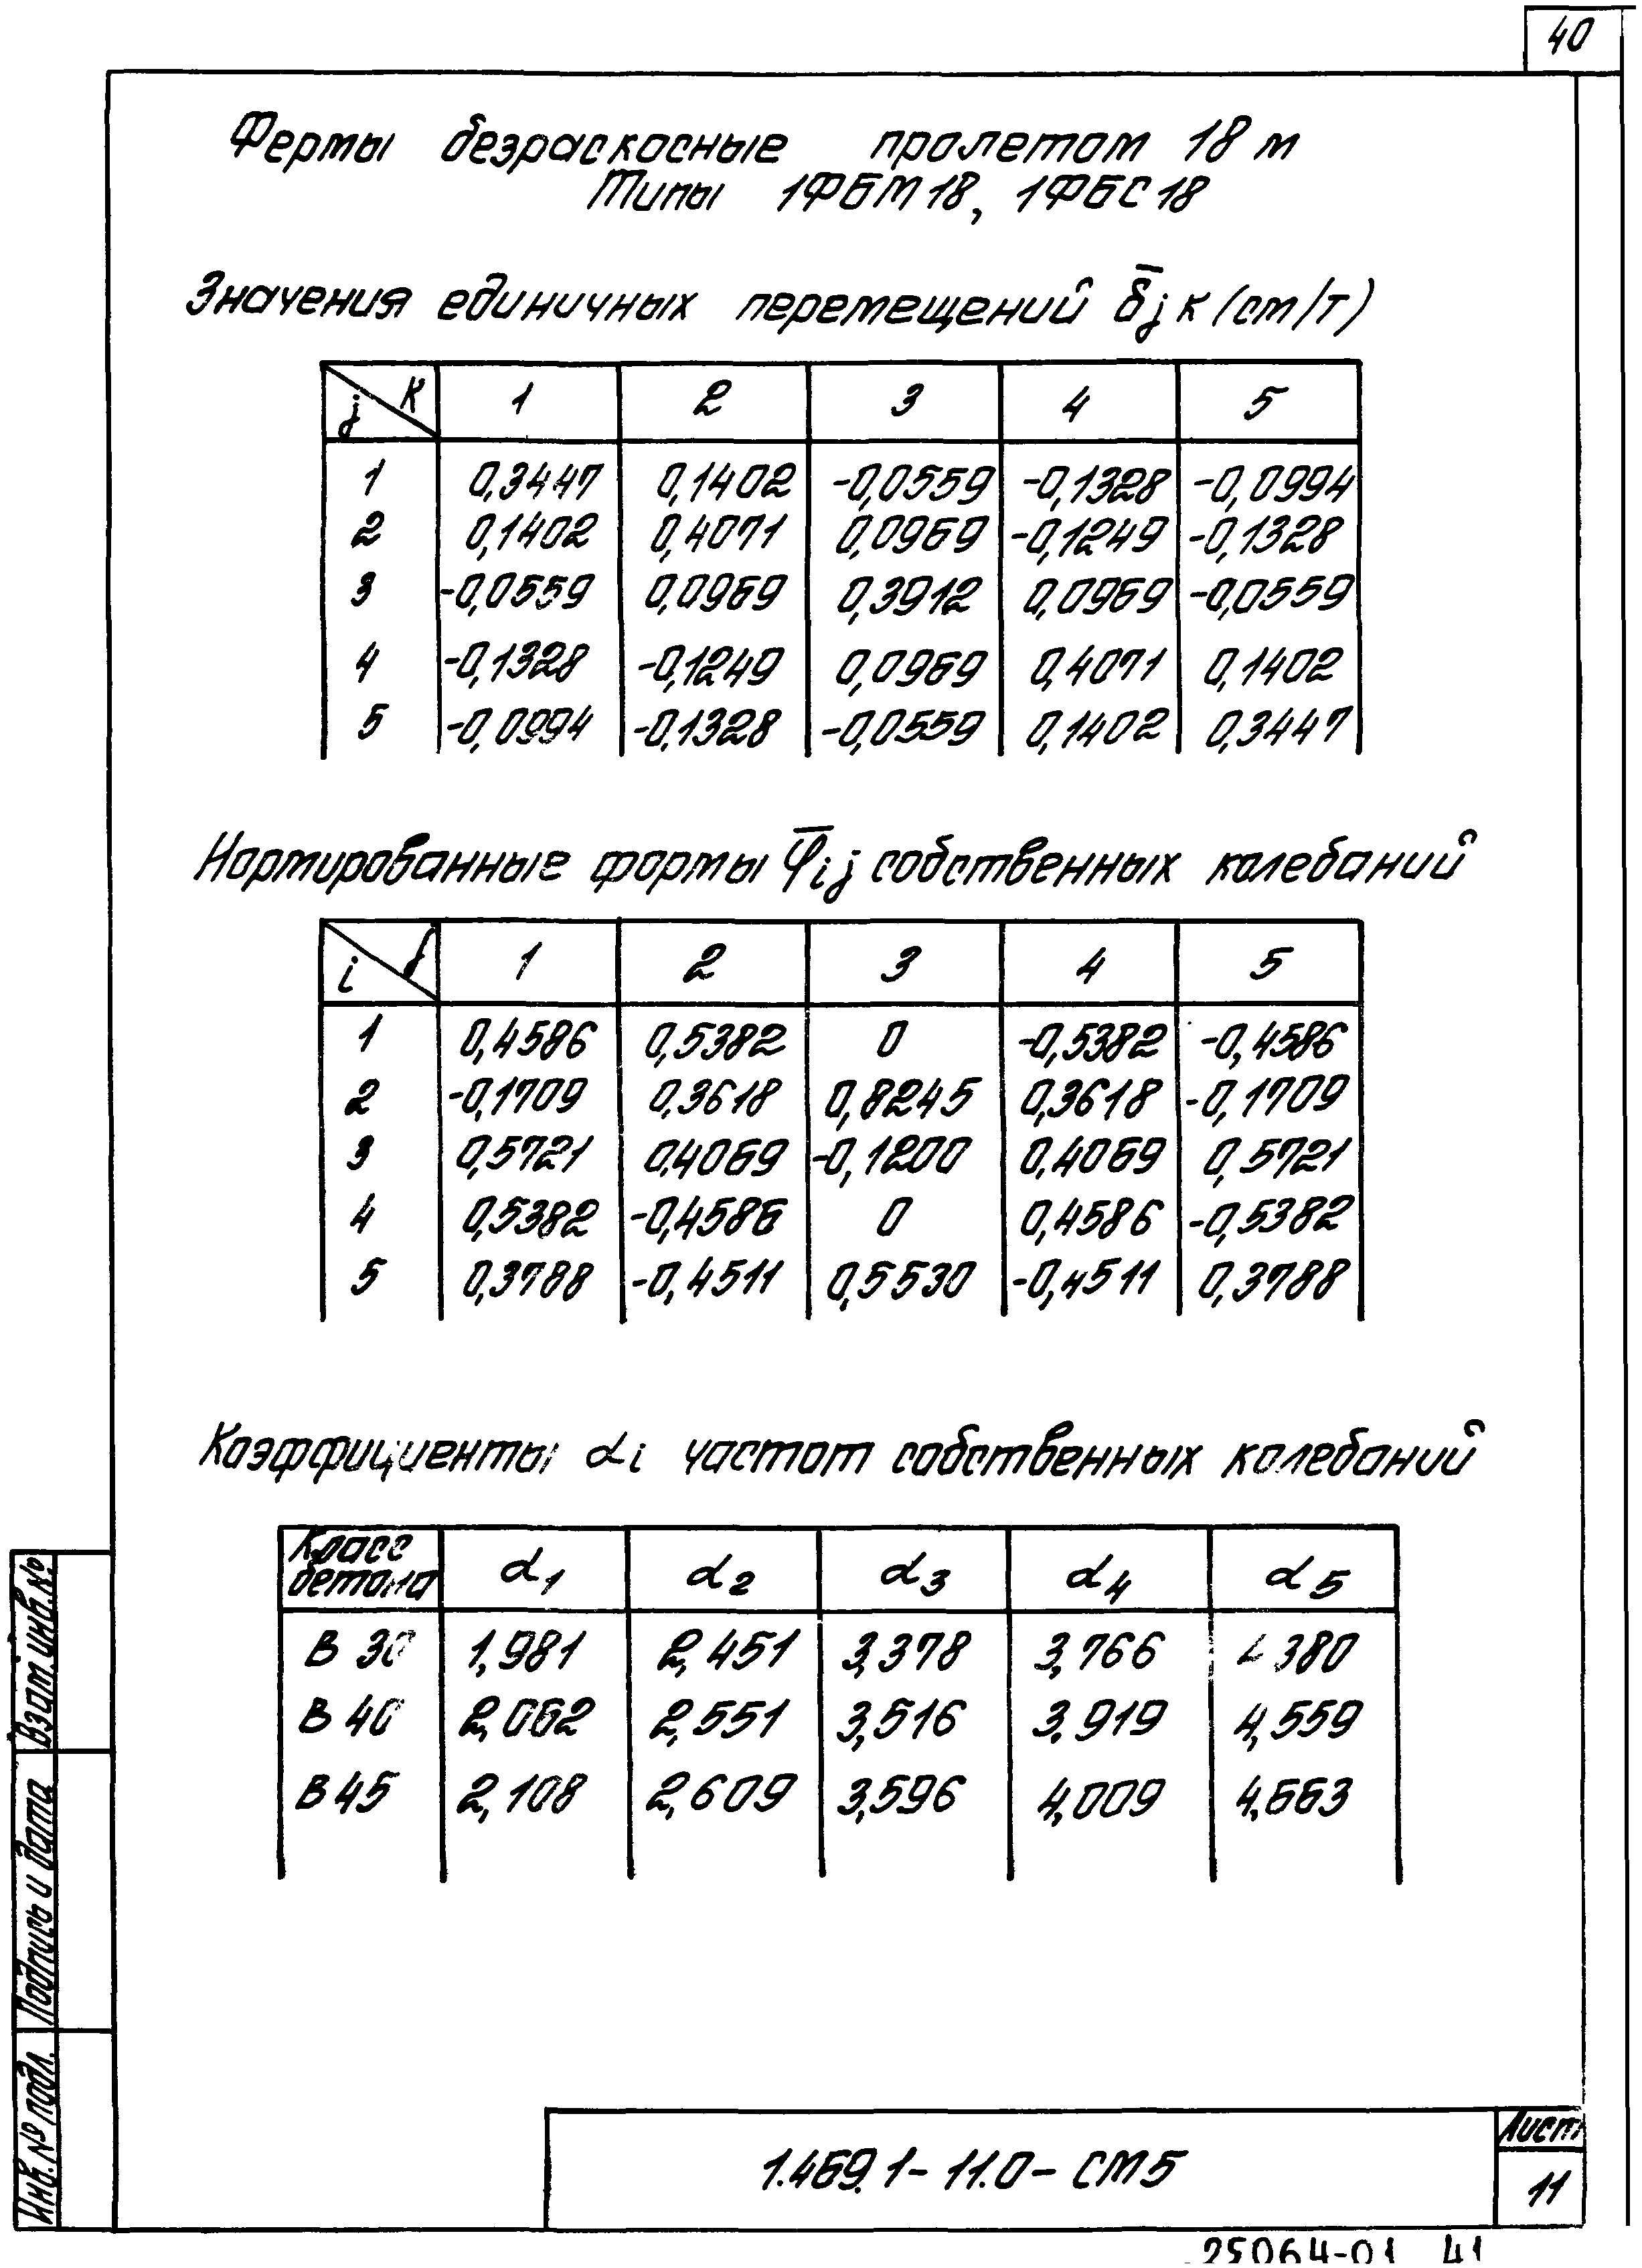 40
Фермы безраскосные пролетом 18 м
Типы 1ФБМ18, 1ФБС18
Значения единичных перемещений δ̄jк (см/т)
j к 1 2 3 4 5
1 0,3447 0,1402 -0,0559 -0,1328 -0,0994
2 0,1402 0,4071 0,0969 -0,1249 -0,1328
3 -0,0559 0,0969 0,3912 0,0969 -0,0559
4 -0,1328 -0,1249 0,0969 0,4071 0,1402
5 -0,0994 -0,1328 -0,0559 0,1402 0,3447
Нормированные формы φ̄ij собственных колебаний
i j 1 2 3 4 5
1 0,4586 0,5382 0 -0,5382 -0,4586
2 -0,1709 0,3618 0,8245 0,3618 -0,1709
3 0,5721 0,4069 -0,1200 0,4069 0,5721
4 0,5382 -0,4586 0 0,4586 -0,5382
5 0,3788 -0,4511 0,5530 -0,4511 0,3788
Коэффициенты αi частот собственных колебаний
Класс
бетона α1 α2 α3 α4 α5
В 30 1,981 2,451 3,378 3,766 4,380
В 40 2,062 2,551 3,516 3,919 4,559
В 45 2,108 2,609 3,596 4,009 4,663
Взам инв.№
Подпись и дата
Инв.№ подл.
1.469.1-11.0-СМ5
Лист
11
25064-01 41